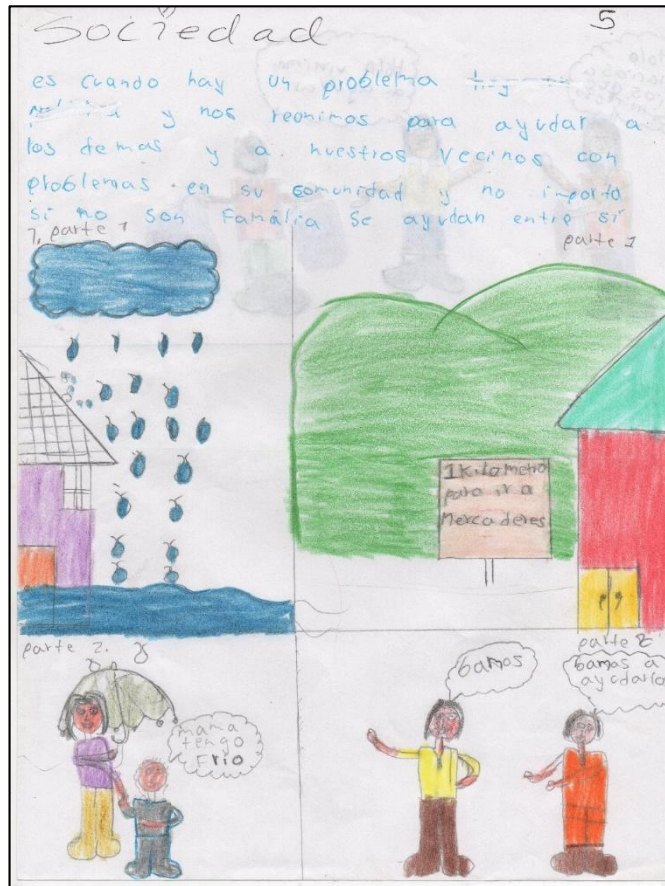 Sociedad
5
es cuando hay un problema
y nos reunimos para ayudar a
los demas y a nuestros vecinos con
problemas en su comunidad y no importa
si no son Famália se ayudan entre sí
1, parte 1
parte 1
1 Kilometro
para ir a
Mercaderes
parte 2.
mama
tengo
Frio
parte 2
bamos
bamos a
ayudarla